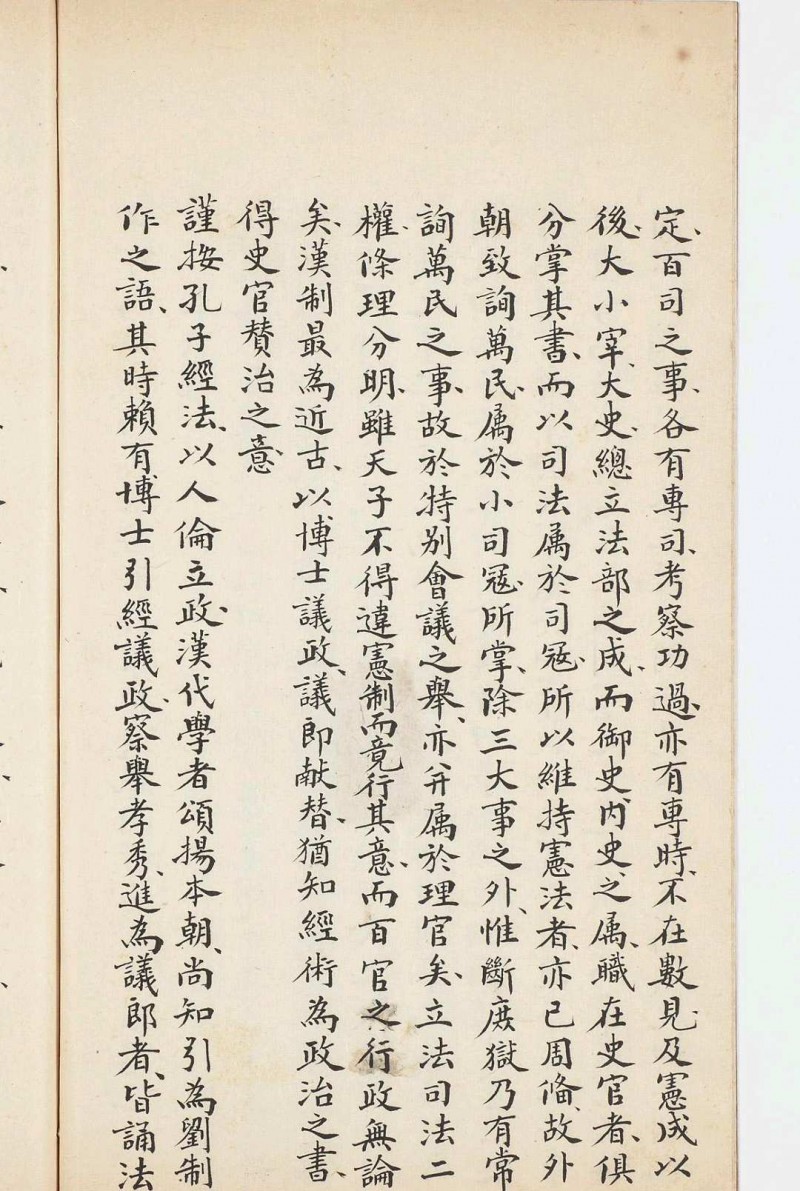 定、百司之事、各有專司、考察功過、亦有專時、不在數見、及憲成以
後、大小宰、大史、總立法部之成、而御史內史、之属、職在史官者、俱
分掌其書、而以司法属於司寇、所以維持憲法者、亦已周備、故外
朝致詢萬民、属於小司寇所掌、除三大事之外、惟斷庶獄乃有常
詢萬民之事、故於特别會議之舉、亦并属於理官矣、立法司法二
權、條理分明、雖天子不得違憲制而竟行其意、而百官之行政無論
矣、漢制最為近古、以博士議政、議郎献替、猶知經術為政治之書、
得史官贊治之意
謹按孔子經法、以人倫立政、漢代學者頌揚本朝、尚知引為劉制
作之語、其時賴有博士引經議政、察舉孝秀、進為議郎者、皆誦法